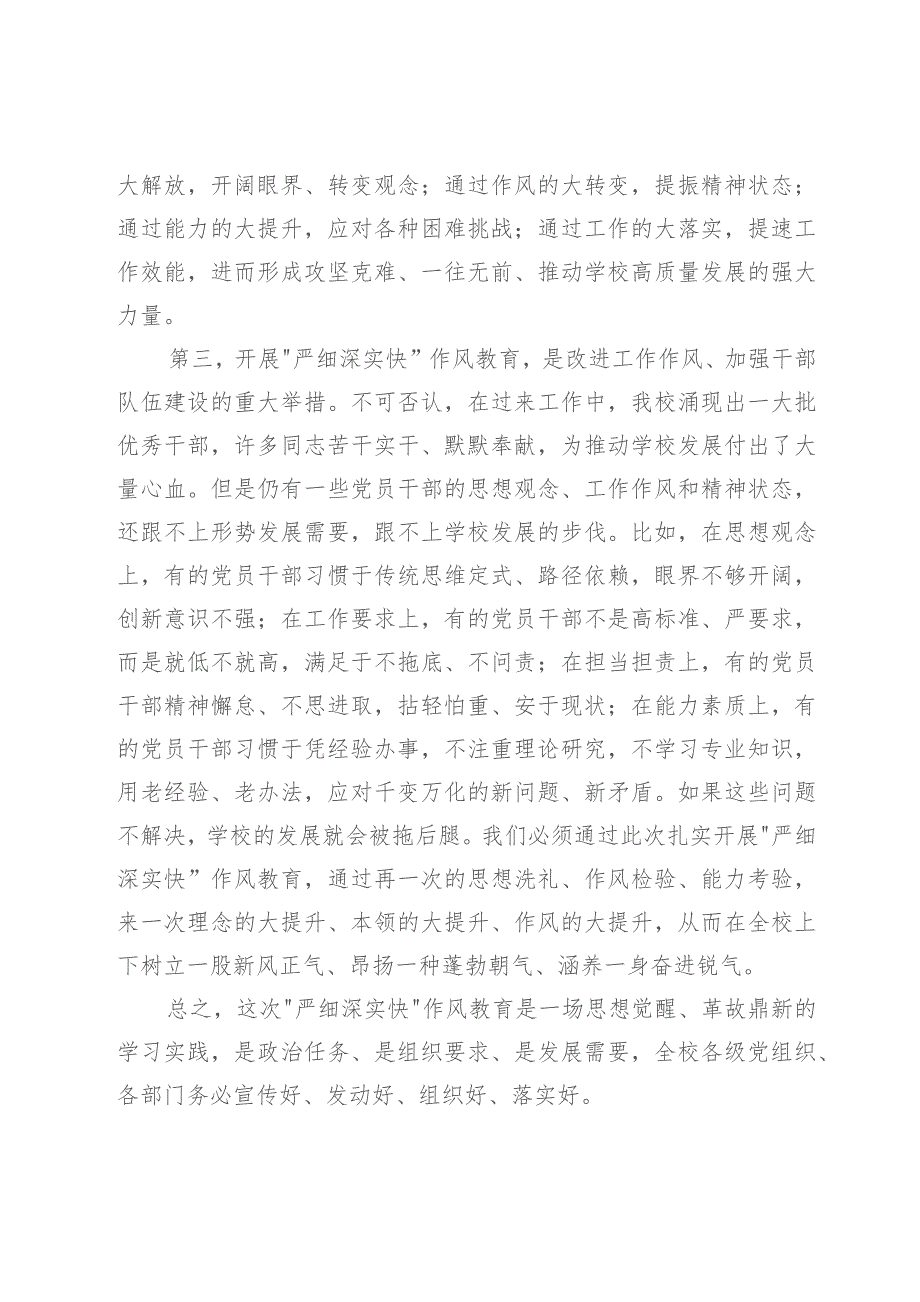 大解放，开阔眼界、转变观念；通过作风的大转变，提振精神状态；
通过能力的大提升，应对各种困难挑战；通过工作的大落实，提速工
作效能，进而形成攻坚克难、一往无前、推动学校高质量发展的强大
力量。
第三，开展"严细深实快”作风教育，是改进工作作风、加强干部
队伍建设的重大举措。不可否认，在过来工作中，我校涌现出一大批
优秀干部，许多同志苦干实干、默默奉献，为推动学校发展付出了大
量心血。但是仍有一些党员干部的思想观念、工作作风和精神状态，
还跟不上形势发展需要，跟不上学校发展的步伐。比如，在思想观念
上，有的党员干部习惯于传统思维定式、路径依赖，眼界不够开阔，
创新意识不强；在工作要求上，有的党员干部不是高标准、严要求，
而是就低不就高，满足于不拖底、不问责；在担当担责上，有的党员
干部精神懈怠、不思进取，拈轻怕重、安于现状；在能力素质上，有
的党员干部习惯于凭经验办事，不注重理论研究，不学习专业知识，
用老经验、老办法，应对千变万化的新问题、新矛盾。如果这些问题
不解决，学校的发展就会被拖后腿。我们必须通过此次扎实开展"严细
深实快”作风教育，通过再一次的思想洗礼、作风检验、能力考验，
来一次理念的大提升、本领的大提升、作风的大提升，从而在全校上
下树立一股新风正气、昂扬一种蓬勃朝气、涵养一身奋进锐气。
总之，这次"严细深实快"作风教育是一场思想觉醒、革故鼎新的
学习实践，是政治任务、是组织要求、是发展需要，全校各级党组织、
各部门务必宣传好、发动好、组织好、落实好。